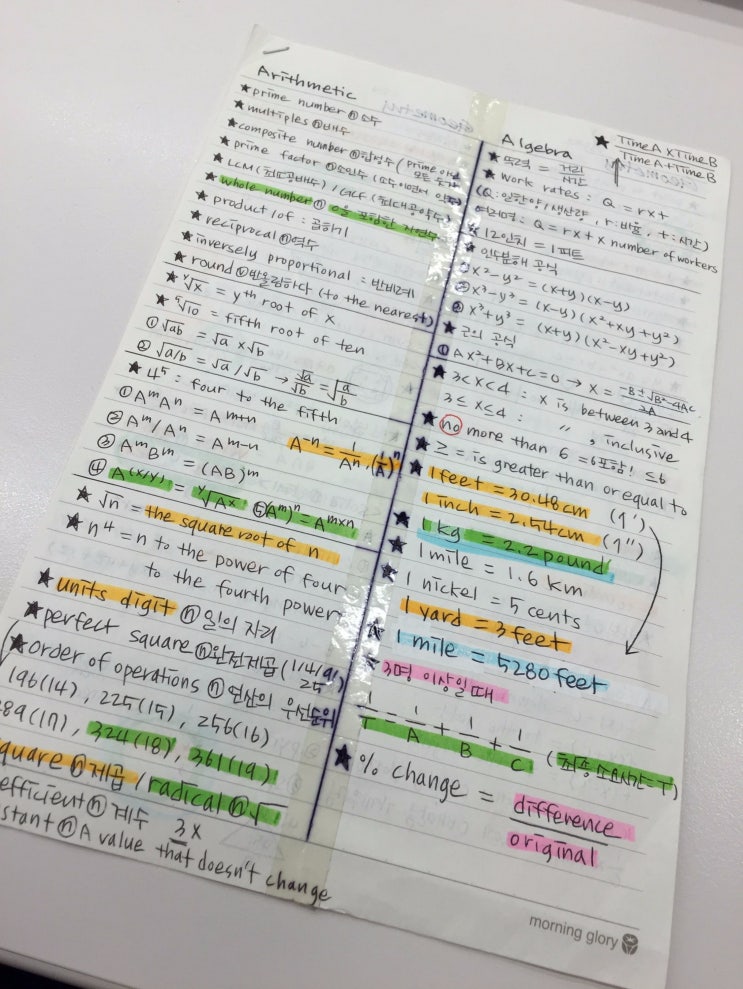 Arithmetic
★ prime number ⓝ소수
★ multiples ⓝ배수
★ composite number ⓝ합성수 (prime 아닌 모든 숫자)
★ prime factor ⓝ소인수 (소수이면서 인수)
★ LCM (최소공배수) / GCF (최대공약수)
★ whole number ⓝ 0을 포함한 자연수
★ product/of : 곱하기
★ reciprocal ⓝ역수
★ inversely proportional : 반비례
★ round ⓥ반올림하다 (to the nearest)
★ ʸ√x = yth root of x
★ ⁵√10 = fifth root of ten
① √ab = √a x √b
② √a/b = √a / √b → √a/√b = √(a/b)
★ 4⁵ : four to the fifth
① AᵐAⁿ = Aᵐ⁺ⁿ
② Aᵐ/Aⁿ = Aᵐ⁻ⁿ A⁻ⁿ = 1/Aⁿ, (1/A)ⁿ
③ AᵐBᵐ = (AB)ᵐ
④ A^(x/y) = ʸ√Aˣ ⑤(Aᵐ)ⁿ = A^(m×n)
★ √n = the square root of n
★ n⁴ = n to the power of four
to the fourth power
★ units digit ⓝ 일의 자리
★ perfect square ⓝ완전제곱 (1/4/9/
25)
★ order of operations ⓝ 연산의 우선순위
196(14), 225(15), 256(16)
89(17), 324(18), 361(19)
quare ⓝ제곱 / radical ⓝ√
efficient ⓝ 계수 3x
stant ⓝ A value that doesn't change
Algebra
★ TimeA x TimeB / TimeA + TimeB
★ 속력 = 거리/시간
★ work rates : Q = rxt
(Q:일한양/생산량, r:비율, t:시간)
여러명 : Q = rxt x number of workers
★ 12인치 = 1피트
★ 인수분해 공식
① x²-y² = (x+y)(x-y)
② x³-y³ = (x-y)(x²+xy+y²)
③ x³+y³ = (x+y)(x²-xy+y²)
★ 근의 공식
① Ax²+Bx+C=0 → x = -B±√B²-4AC / 2A
★ 3<x<4 : x is between 3 and 4
3≤x≤4 : 〃 , inclusive
★ no more than 6 = 6포함! ≤6
★ ≥ = is greater than or equal to
★ 1 feet = 30.48cm (1')
1 inch = 2.54cm (1")
★ 1 kg = 2.2 pound
★ 1 mile = 1.6 km
★ 1 nickel = 5 cents
1 yard = 3 feet
★ 1 mile = 5280 feet
★ 3명 이상일때
1/T = 1/A + 1/B + 1/C (최종 소요시간=T)
★ % change = difference / original
morning glory